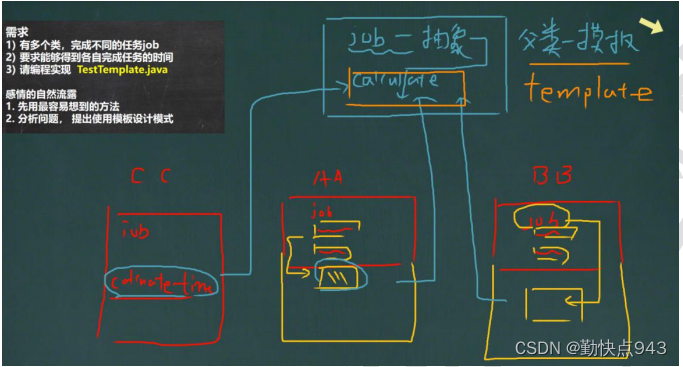 需求
1) 有多个类，完成不同的任务job
2) 要求能够得到各自完成任务的时间
3) 请编程实现 TestTemplate.java
感情的自然流露
1. 先用最容易想到的方法
2. 分析问题， 提出使用模板设计模式
job － 抽象
calculate
父类－模板
template
C C
AA
BB
job
job
job
calculate-time
CSDN @勤快点943